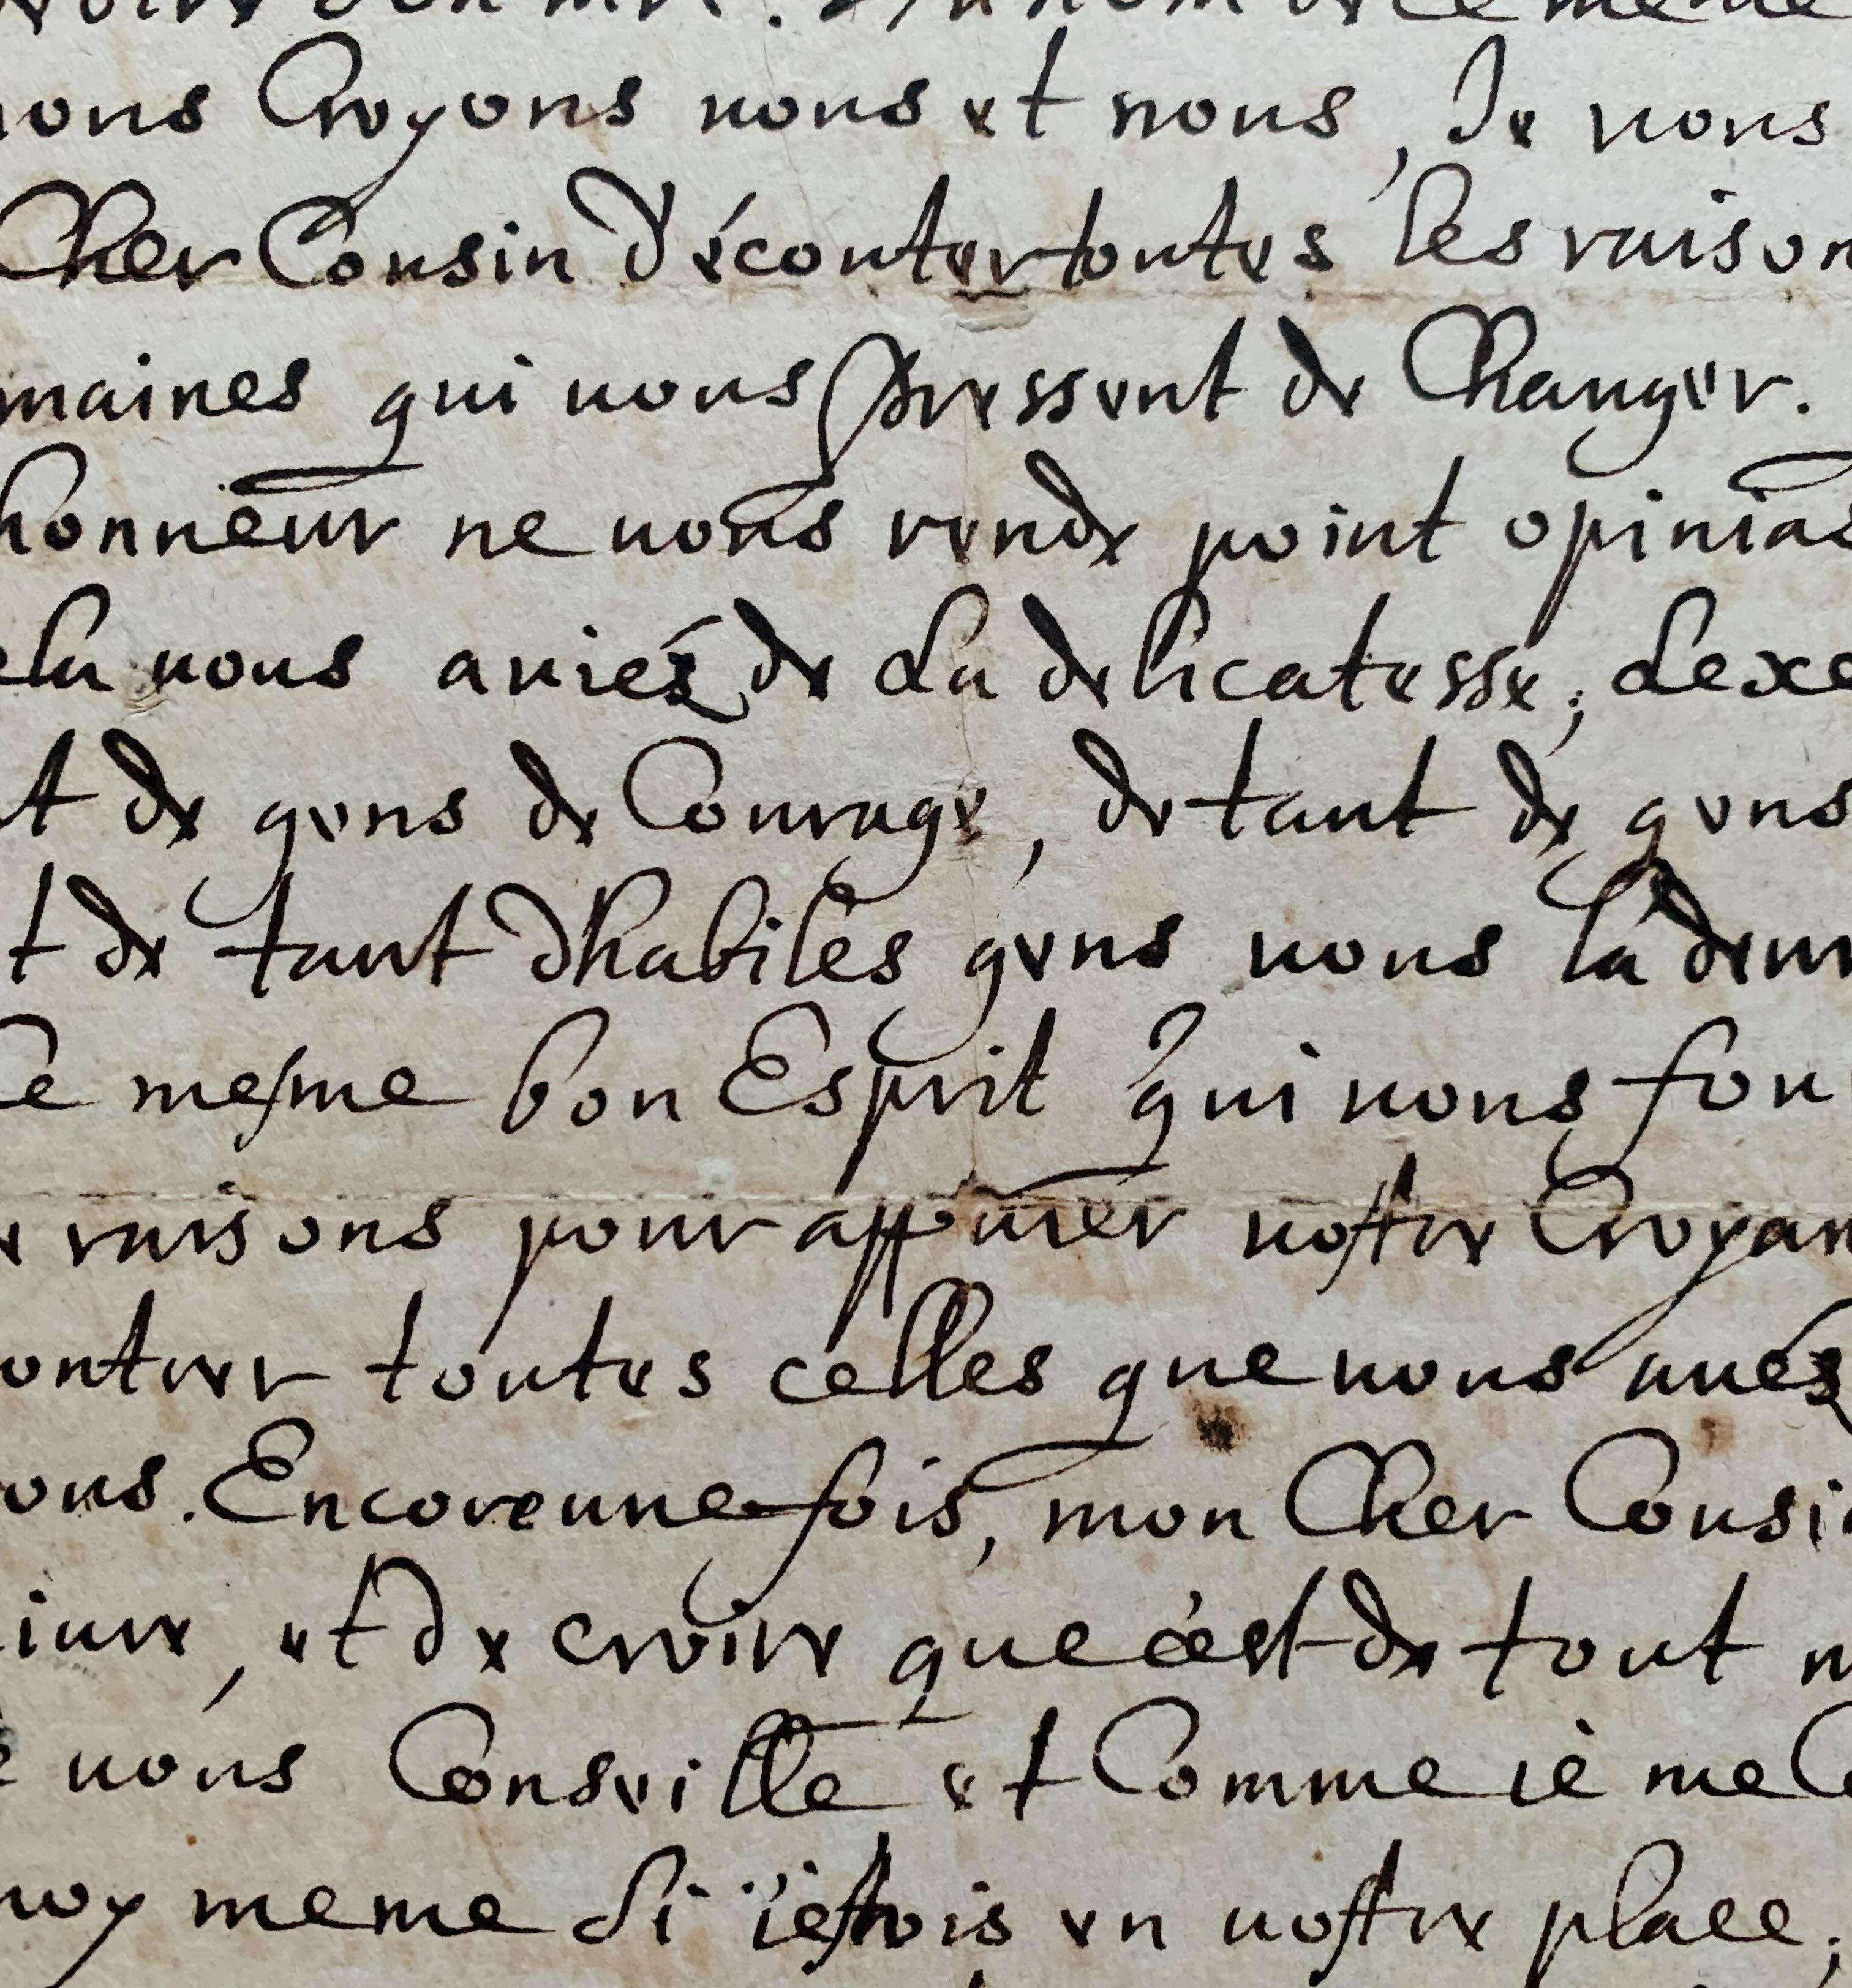 nous Croyons vous et nous, Je vous
Cher Cousin d'écouter toutes les raison
maines qui vous pressent de Changer.
honneur ne vous rende point opinias
ela vous aviéz de La delicatesse; Lexe
t de gens de Courage, de tant de gens
t de tant dhabiles gens vous la
Ce mesme bon Esprit qui vous fou
e raisons pour appuier vostre Croyan
ontrer toutes celles que vous avéz
ons. Encore une fois, mon Cher Cousi
iure, et de croire que c'est de tout m
e vous Conseille et Comme ie me Co
moy meme Si i'estois en vostre place;